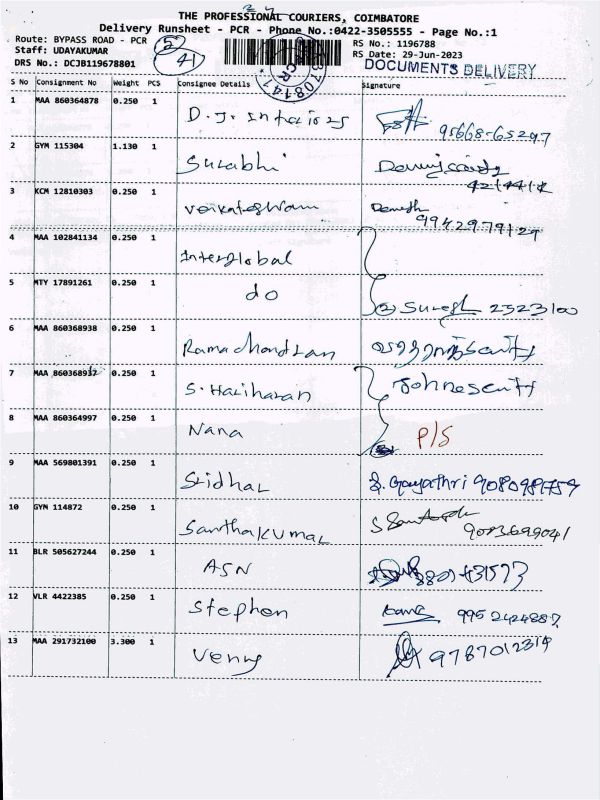 THE PROFESSIONAL COURIERS, COIMBATORE
Delivery Runsheet - PCR - Phone No.:0422-3505555 - Page No.:1
Route: BYPASS ROAD - PCR
RS No.: 1196788
Staff: UDAYAKUMAR
41
RS Date: 29-Jun-2023
DRS No.: DCJB119678801
DOCUMENTS DELIVERY
S No Consignment No Weight PCS Consignee Details Signature
1 MAA 860364878 0.250 1 D.J. Interiors 95668-65297
2 GYM 115304 1.130 1 Surabhi
3 KCM 12810303 0.250 1 Venkateshwara
4 MAA 102841134 0.250 1 Interglobal
5 MTY 17891261 0.250 1 do Suresh 2523100
6 MAA 860368938 0.250 1 Ramachandran
7 MAA 860368937 0.250 1 S. Hariharan
8 MAA 860364997 0.250 1 Nana P/S
9 MAA 569801391 0.250 1 Sridhar Gayathri
10 GYM 114872 0.250 1 Santhakumar
11 BLR 505627244 0.250 1 ASN
12 VLR 4422385 0.250 1 Stephen 9952424887
13 MAA 291732100 3.300 1 Venny 9787012314